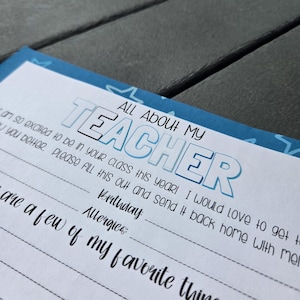 ALL ABOUT MY
TEACHER
am so excited to be in your class this year! I would love to get t
you better. Please fill this out and send it back home with me!
Birthday:
Allergies:
are a few of my favorite thing